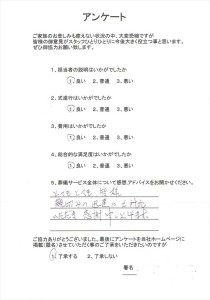 アンケート
ご家族のお悲しみも癒えない状況の中、大変恐縮ですが
皆様の御意見がスタッフひとりひとりに今後大きく役立つ事と思います。
ぜひ御協力お願い致します。
1、担当者の説明はいかがでしたか
1、良い 2、普通 3、悪い
2、式進行はいかがでしたか
1、良い 2、普通 3、悪い
3、費用はいかがでしたか
1、良い 2、普通 3、悪い
4、総合的な満足度はいかがでしたか
1、良い 2、普通 3、悪い
5、葬儀サービス全体について感想、アドバイスをお聞かせください。
とても とても 皆様
親切かつ 迅速に
いただき 感謝申し上げます
ご協力ありがとうございました。最後にアンケートを当社ホームページに
掲載(匿名)させていただく事のご了承をいただきたいのですが
1、了承する 2、了承しない
署名